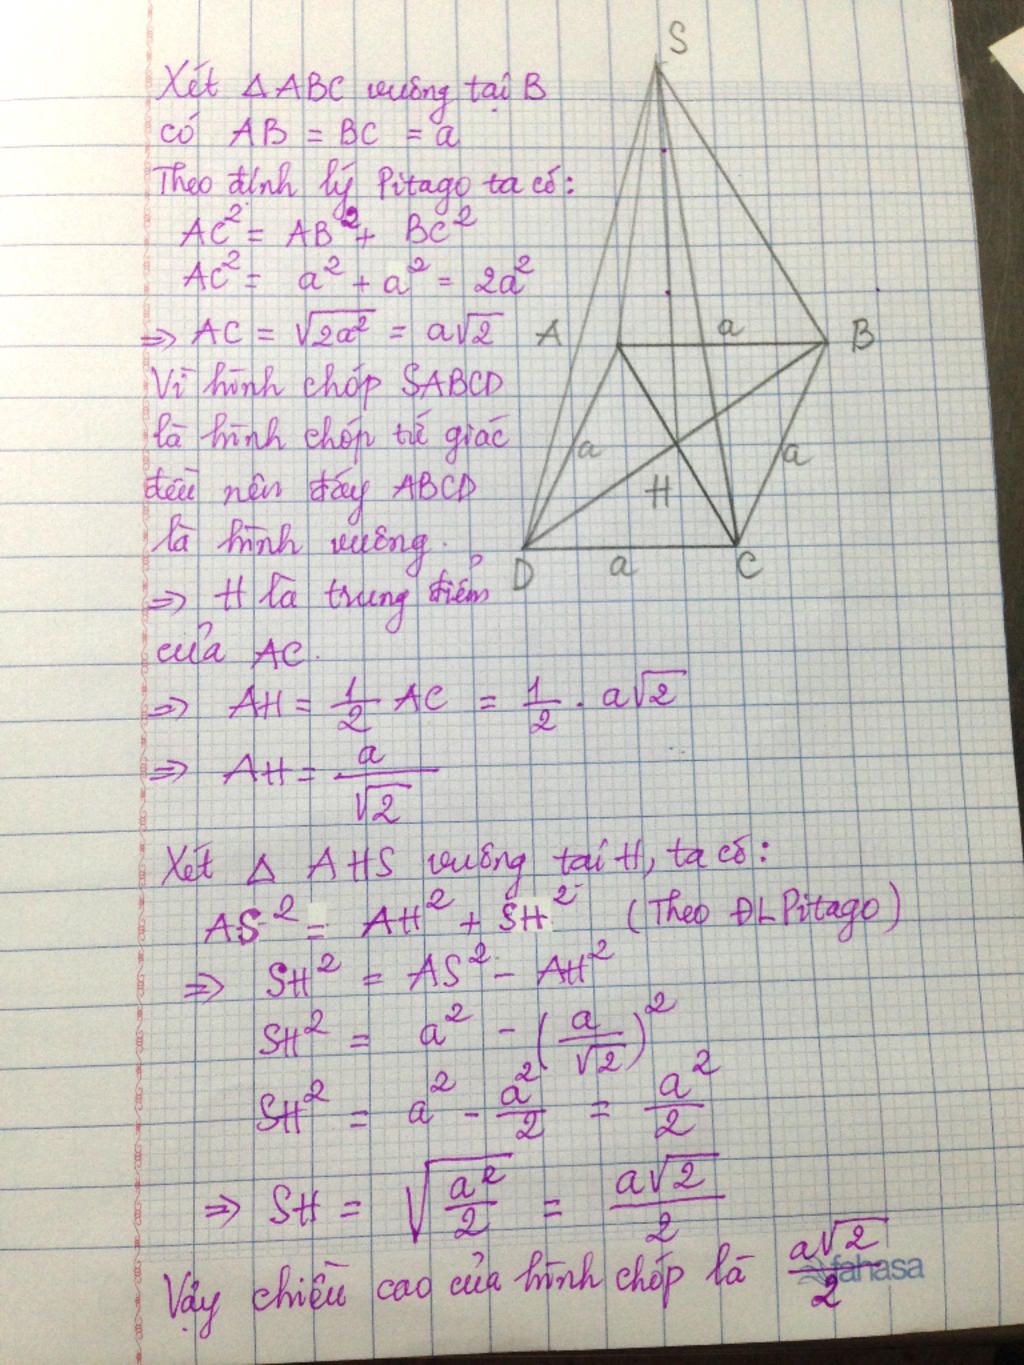 Xét ΔABC vuông tại B
có AB = BC = a
Theo định lý Pitago ta có:
AC² = AB² + BC²
AC² = a² + a² = 2a²
=> AC = √2a² = a√2
Vì hình chóp SABCD
là hình chóp tứ giác
đều nên đáy ABCD
là hình vuông.
=> H là trung điểm
của AC.
=> AH = 1/2 AC = 1/2 . a√2
=> AH = a/√2
Xét Δ AHS vuông tại H, ta có:
AS² = AH² + SH² (Theo ĐL Pitago)
=> SH² = AS² - AH²
SH² = a² - (a/√2)²
SH² = a² - a²/2 = a²/2
=> SH = √(a²/2) = a√2/2
Vậy chiều cao của hình chóp là a√2/2
S
A
a
B
a
a
H
D
a
C
fahasa